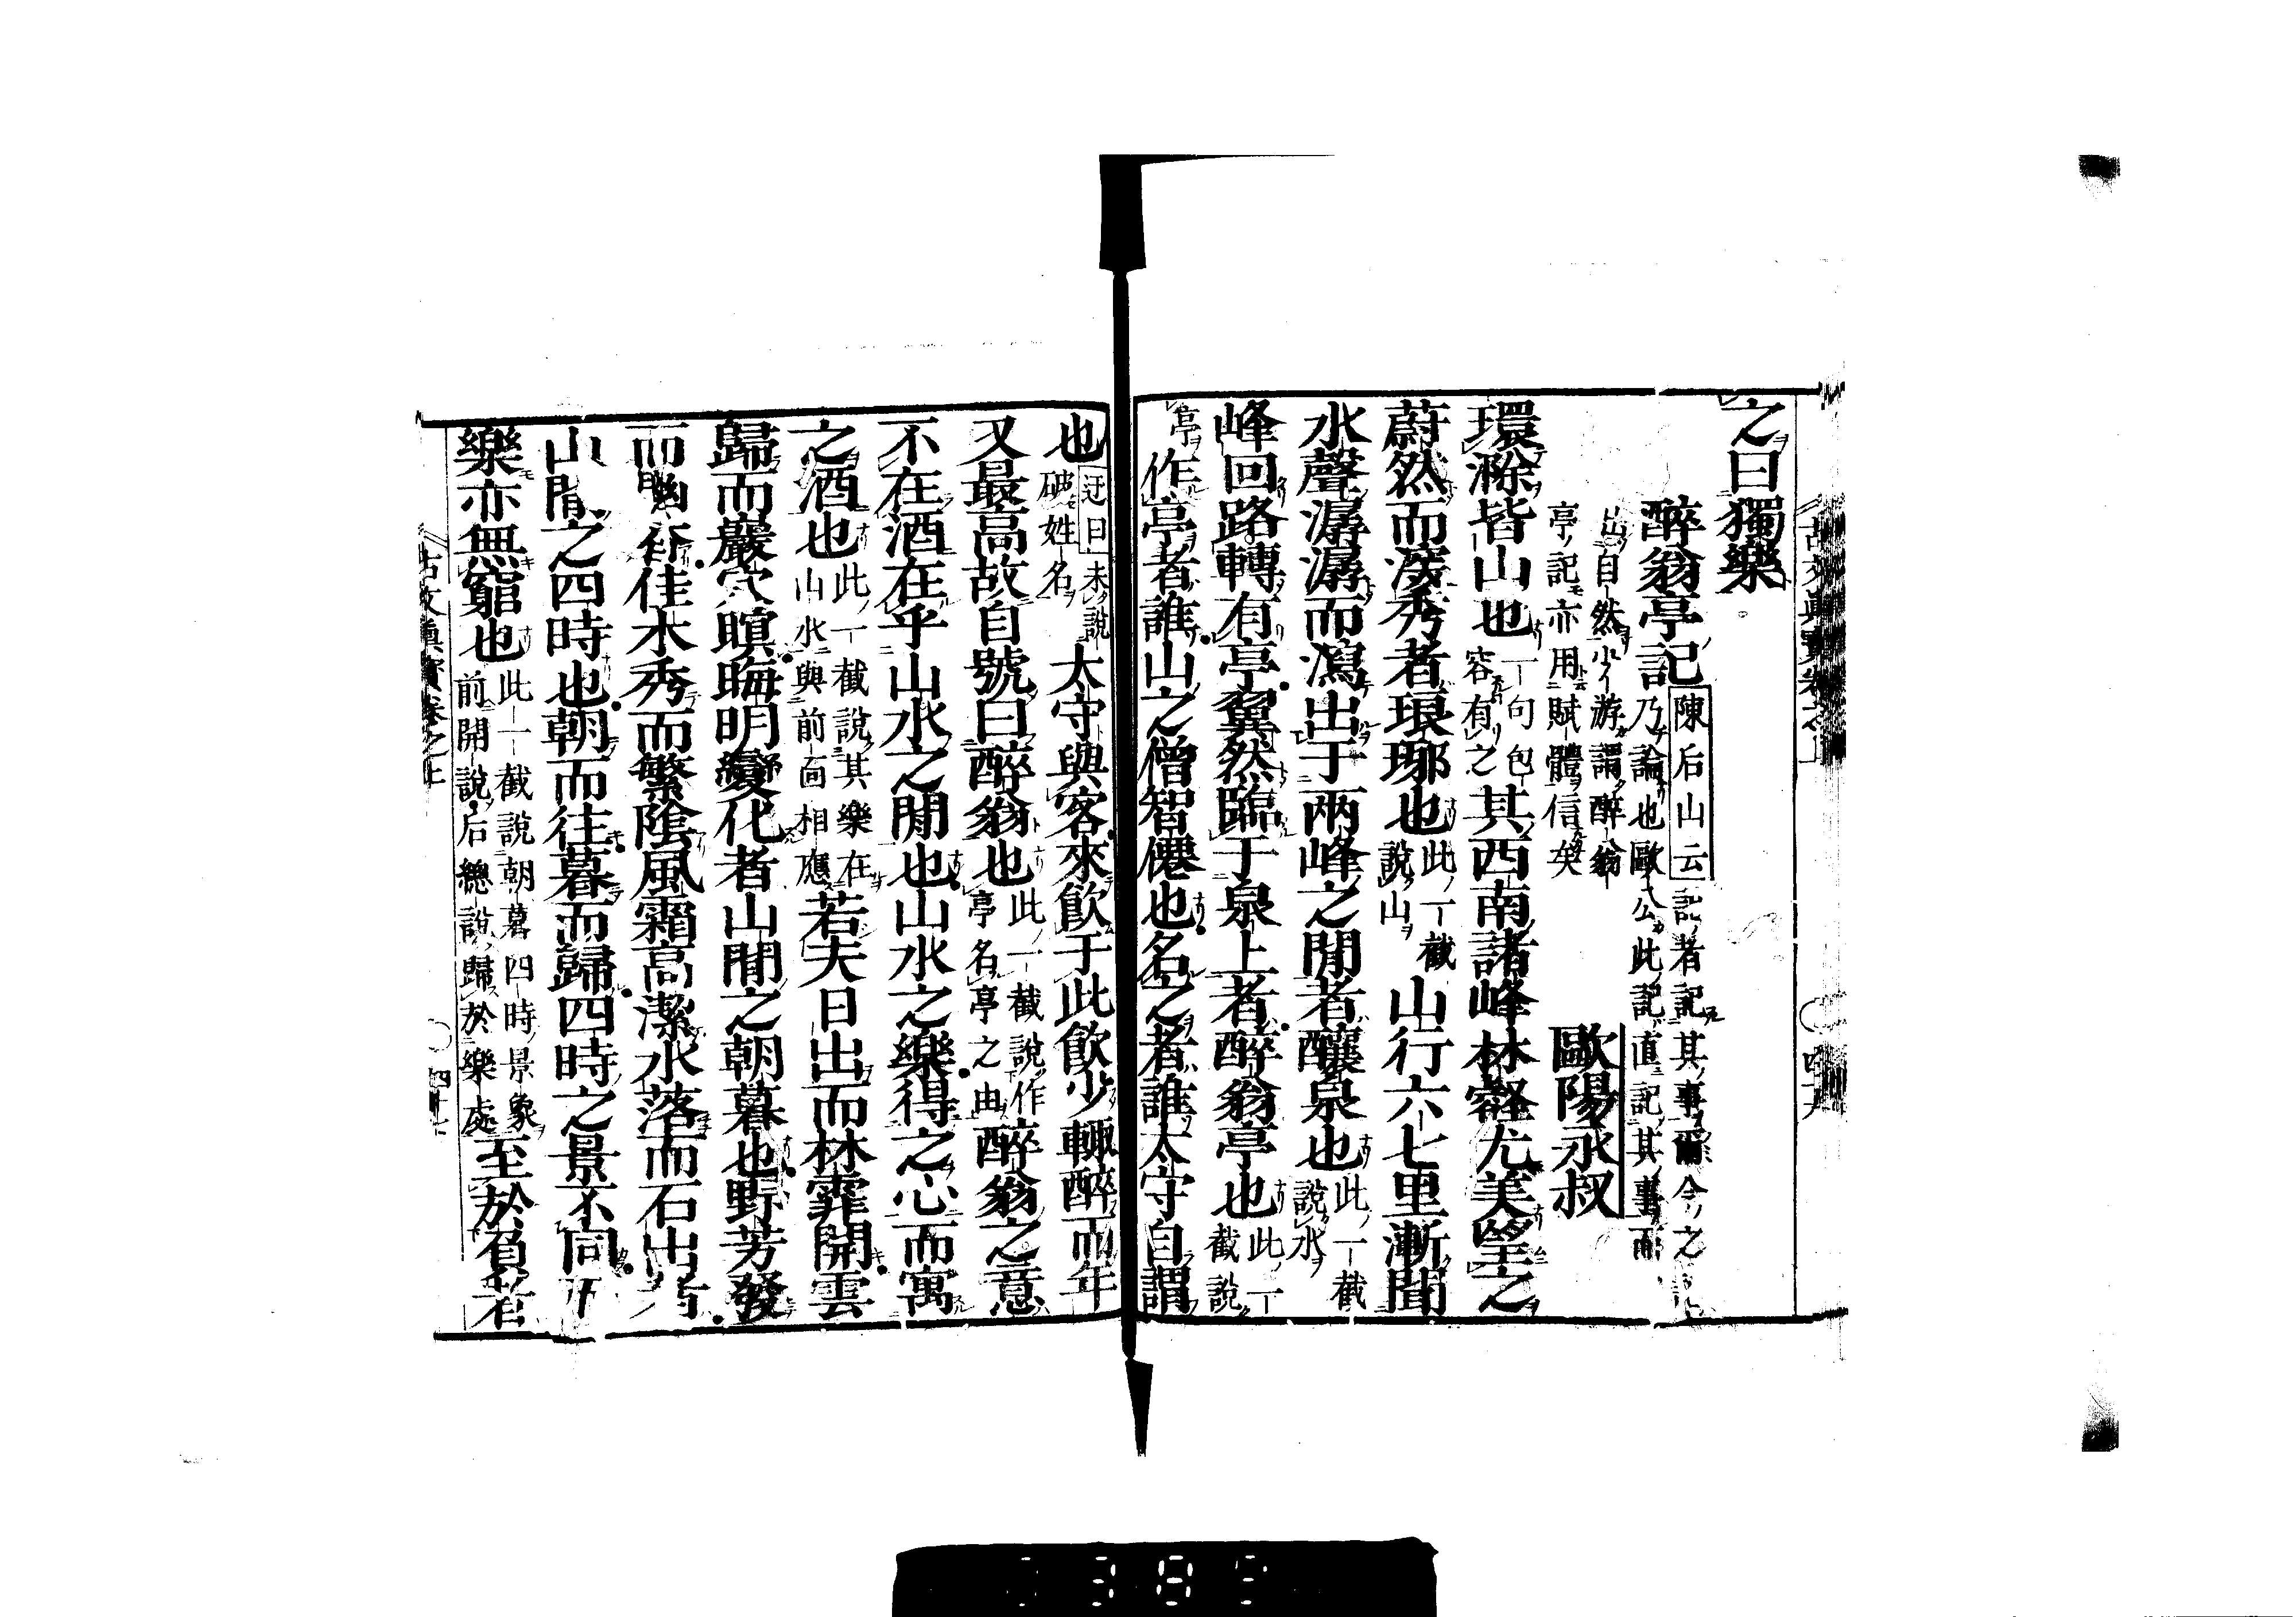 之曰獨樂
醉翁亭記 陳后山云記者記其事爾今之記
乃論也歐公此記直記其事而
出自然少游謂醉翁
亭記亦用賦體信矣
歐陽永叔
環滁皆山也一句包容有之其西南諸峰林壑尤美望之
蔚然而深秀者琅琊也此一截說山山行六七里漸聞
水聲潺潺而瀉出于兩峰之閒者釀泉也此一截說水
峰回路轉有亭翼然臨于泉上者醉翁亭也此一截說
亭作亭者誰山之僧智僊也名之者誰太守自謂
也迂曰未說破姓名太守與客來飲于此飲少輒醉而年
又最高故自號曰醉翁也此一截說作亭名亭之由醉翁之意
不在酒在乎山水之閒也山水之樂得之心而寓
之酒也此一截說其樂在山水與前面相應若夫日出而林霏開雲
歸而巖穴暝晦明變化者山閒之朝暮也野芳發
而幽香佳木秀而繁陰風霜高潔水落而石出者
山閒之四時也朝而往暮而歸四時之景不同而
樂亦無窮也此一截說朝暮四時景象前開說后總說歸於樂處至於負者
古文真寶卷之上